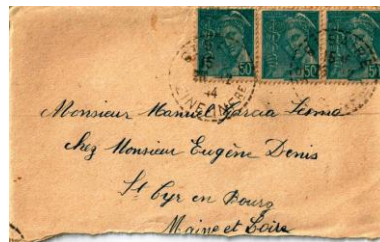 50 50 5
Monsieur Manuel Garcia Lesma
chez Monsieur Eugène Denis
St Cyr en Bourg
Maine et Loire